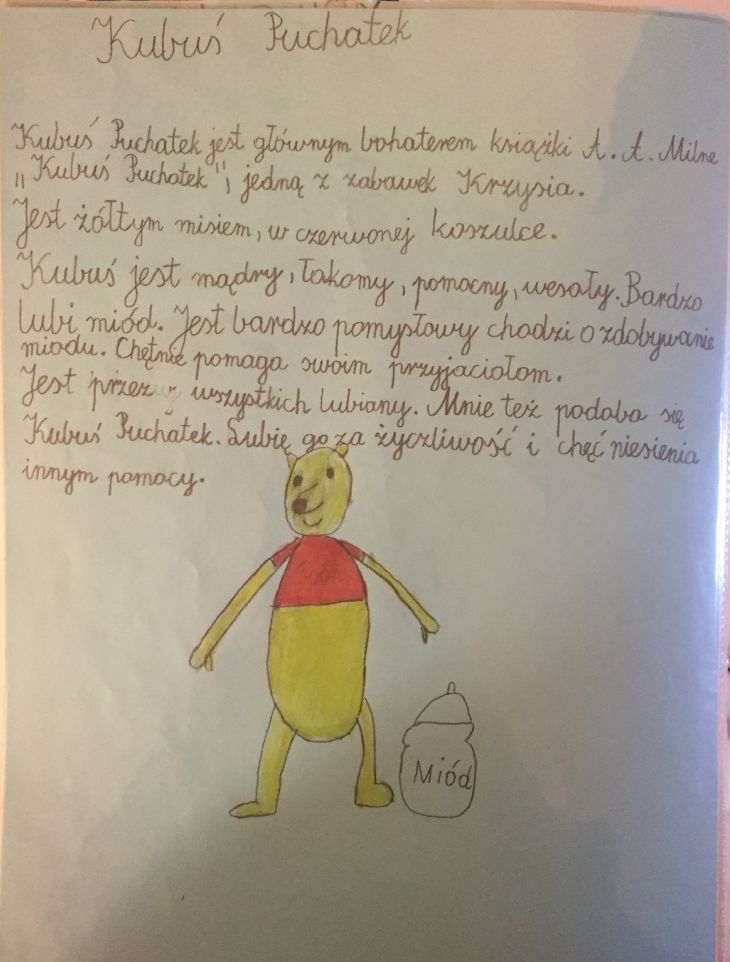 Kubuś Puchatek
Kubuś Puchatek jest głównym bohaterem książki A. A. Milne
"Kubuś Puchatek", jedną z zabawek Krzysia.
Jest żółtym misiem, w czerwonej koszulce.
Kubuś jest mądry, łakomy, pomocny, wesoły. Bardzo
lubi miód. Jest bardzo pomysłowy chodzi o zdobywanie
miodu. Chętnie pomaga swoim przyjaciołom.
Jest przez wszystkich lubiany. Mnie też podoba się
Kubuś Puchatek. Lubię go za życzliwość i chęć niesienia
innym pomocy.
Miód